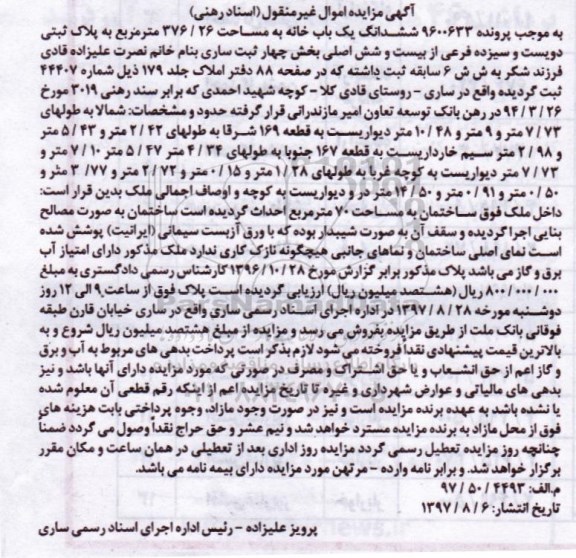 آگهی مزایده اموال غیرمنقول (اسناد رهنی)
به موجب پرونده ۹۶۰۰۶۳۳ ششدانگ یک باب خانه به مساحت ۲۶ / ۳۷۶ مترمربع به پلاک ثبتی
دویست و سیزده فرعی از بیست و شش اصلی بخش چهار ثبت ساری بنام خانم نصرت علیزاده قادی
فرزند شکر به ش ش ۶ سابقه ثبت داشته که در صفحه ۸۸ دفتر املاک جلد ۱۷۹ ذیل شماره ۴۴۴۰۷
ثبت گردید. واقع در ساری – روستای قادی کلا – کوچه شهید احمدی که برابر سند رهنی ۳۰۱۹ مورخ
۲۶ / ۳ / ۹۴ در رهن بانک توسعه تعاون امیر مازندرانی قرار گرفته حدود و مشخصات: شمالا به طولهای
۷۳ / ۷ متر و ۹ متر و ۴۸ / ۱۰ متر دیواریست به قطعه ۱۶۹ شرقا به طولهای ۴۲ / ۲ متر و ۴۳ / ۵ متر
و ۹۸ / ۲ متر سیم خارداریست به قطعه ۱۶۷ جنوبا به طولهای ۳۴ / ۴ متر ۴۷ / ۵ متر ۱۰ / ۷ متر و
۷۳ / ۷ متر دیواریست به کوچه غربا به طولهای ۲۸ / ۱ متر و ۱۵ / ۰ متر و ۷۳ / ۲ متر و ۷۷ / ۳ متر و
۵۰ / ۰ متر و ۹۱ / ۰ متر و ۵۰ / ۱۴ متر در و دیواریست به کوچه و اوصاف اجمالی ملک بدین قرار است:
داخل ملک فوق ساختمان به مساحت ۷۰ مترمربع احداث گردیده است ساختمان به صورت مصالح
بنایی اجرا گردیده و سقف آن به صورت شیبدار بوده که با ورق آزبست سیمانی (ایرانیت) پوشش شده
است نمای اصلی ساختمان و نماهای جانبی هیچگونه نازک کاری ندارد ملک مذکور دارای امتیاز آب
برق و گاز می باشد پلاک مذکور برابر گزارش مورخ ۲۸ / ۱۰ / ۱۳۹۶ کارشناس رسمی دادگستری به مبلغ
۸۰۰ / ۰۰۰ / ۰۰۰ ریال (هشتصد میلیون ریال) ارزیابی گردیده است پلاک فوق از ساعت ۹ الی ۱۲ روز
دوشنبه مورخه ۲۸ / ۸ / ۱۳۹۷ در اداره اجرای اسناد رسمی ساری واقع در ساری خیابان قارن طبقه
فوقانی بانک ملت از طریق مزایده بفروش می رسد و مزایده از مبلغ هشتصد میلیون ریال شروع و به
بالاترین قیمت پیشنهادی نقدا فروخته می شود لازم بذکر است پرداخت بدهی های مربوط به آب و برق
و گاز اعم از حق انشعاب و یا حق اشتراک و مصرف در صورتی که مورد مزایده دارای آنها باشد و نیز
بدهی های مالیاتی و عوارض شهرداری و غیره تا تاریخ مزایده اعم از اینکه رقم قطعی آن معلوم شده
یا نشده باشد به عهده برنده مزایده است و نیز در صورت وجود مازاد، وجوه پرداختی بابت هزینه های
فوق از محل مازاد به برنده مزایده مسترد خواهد شد و نیم عشر و حق حراج نقدا وصول می گردد ضمناً
چنانچه روز مزایده تعطیل رسمی گردد مزایده روز اداری بعد از تعطیلی در همان ساعت و مکان مقرر
برگزار خواهد شد. و برابر نامه وارده – مرتهن مورد مزایده دارای بیمه نامه می باشد.
م.الف: ۴۴۹۳ / ۵۰ / ۹۷
تاریخ انتشار: ۶ / ۸ / ۱۳۹۷
پرویز علیزاده – رئیس اداره اجرای اسناد رسمی ساری
ParsNamadData